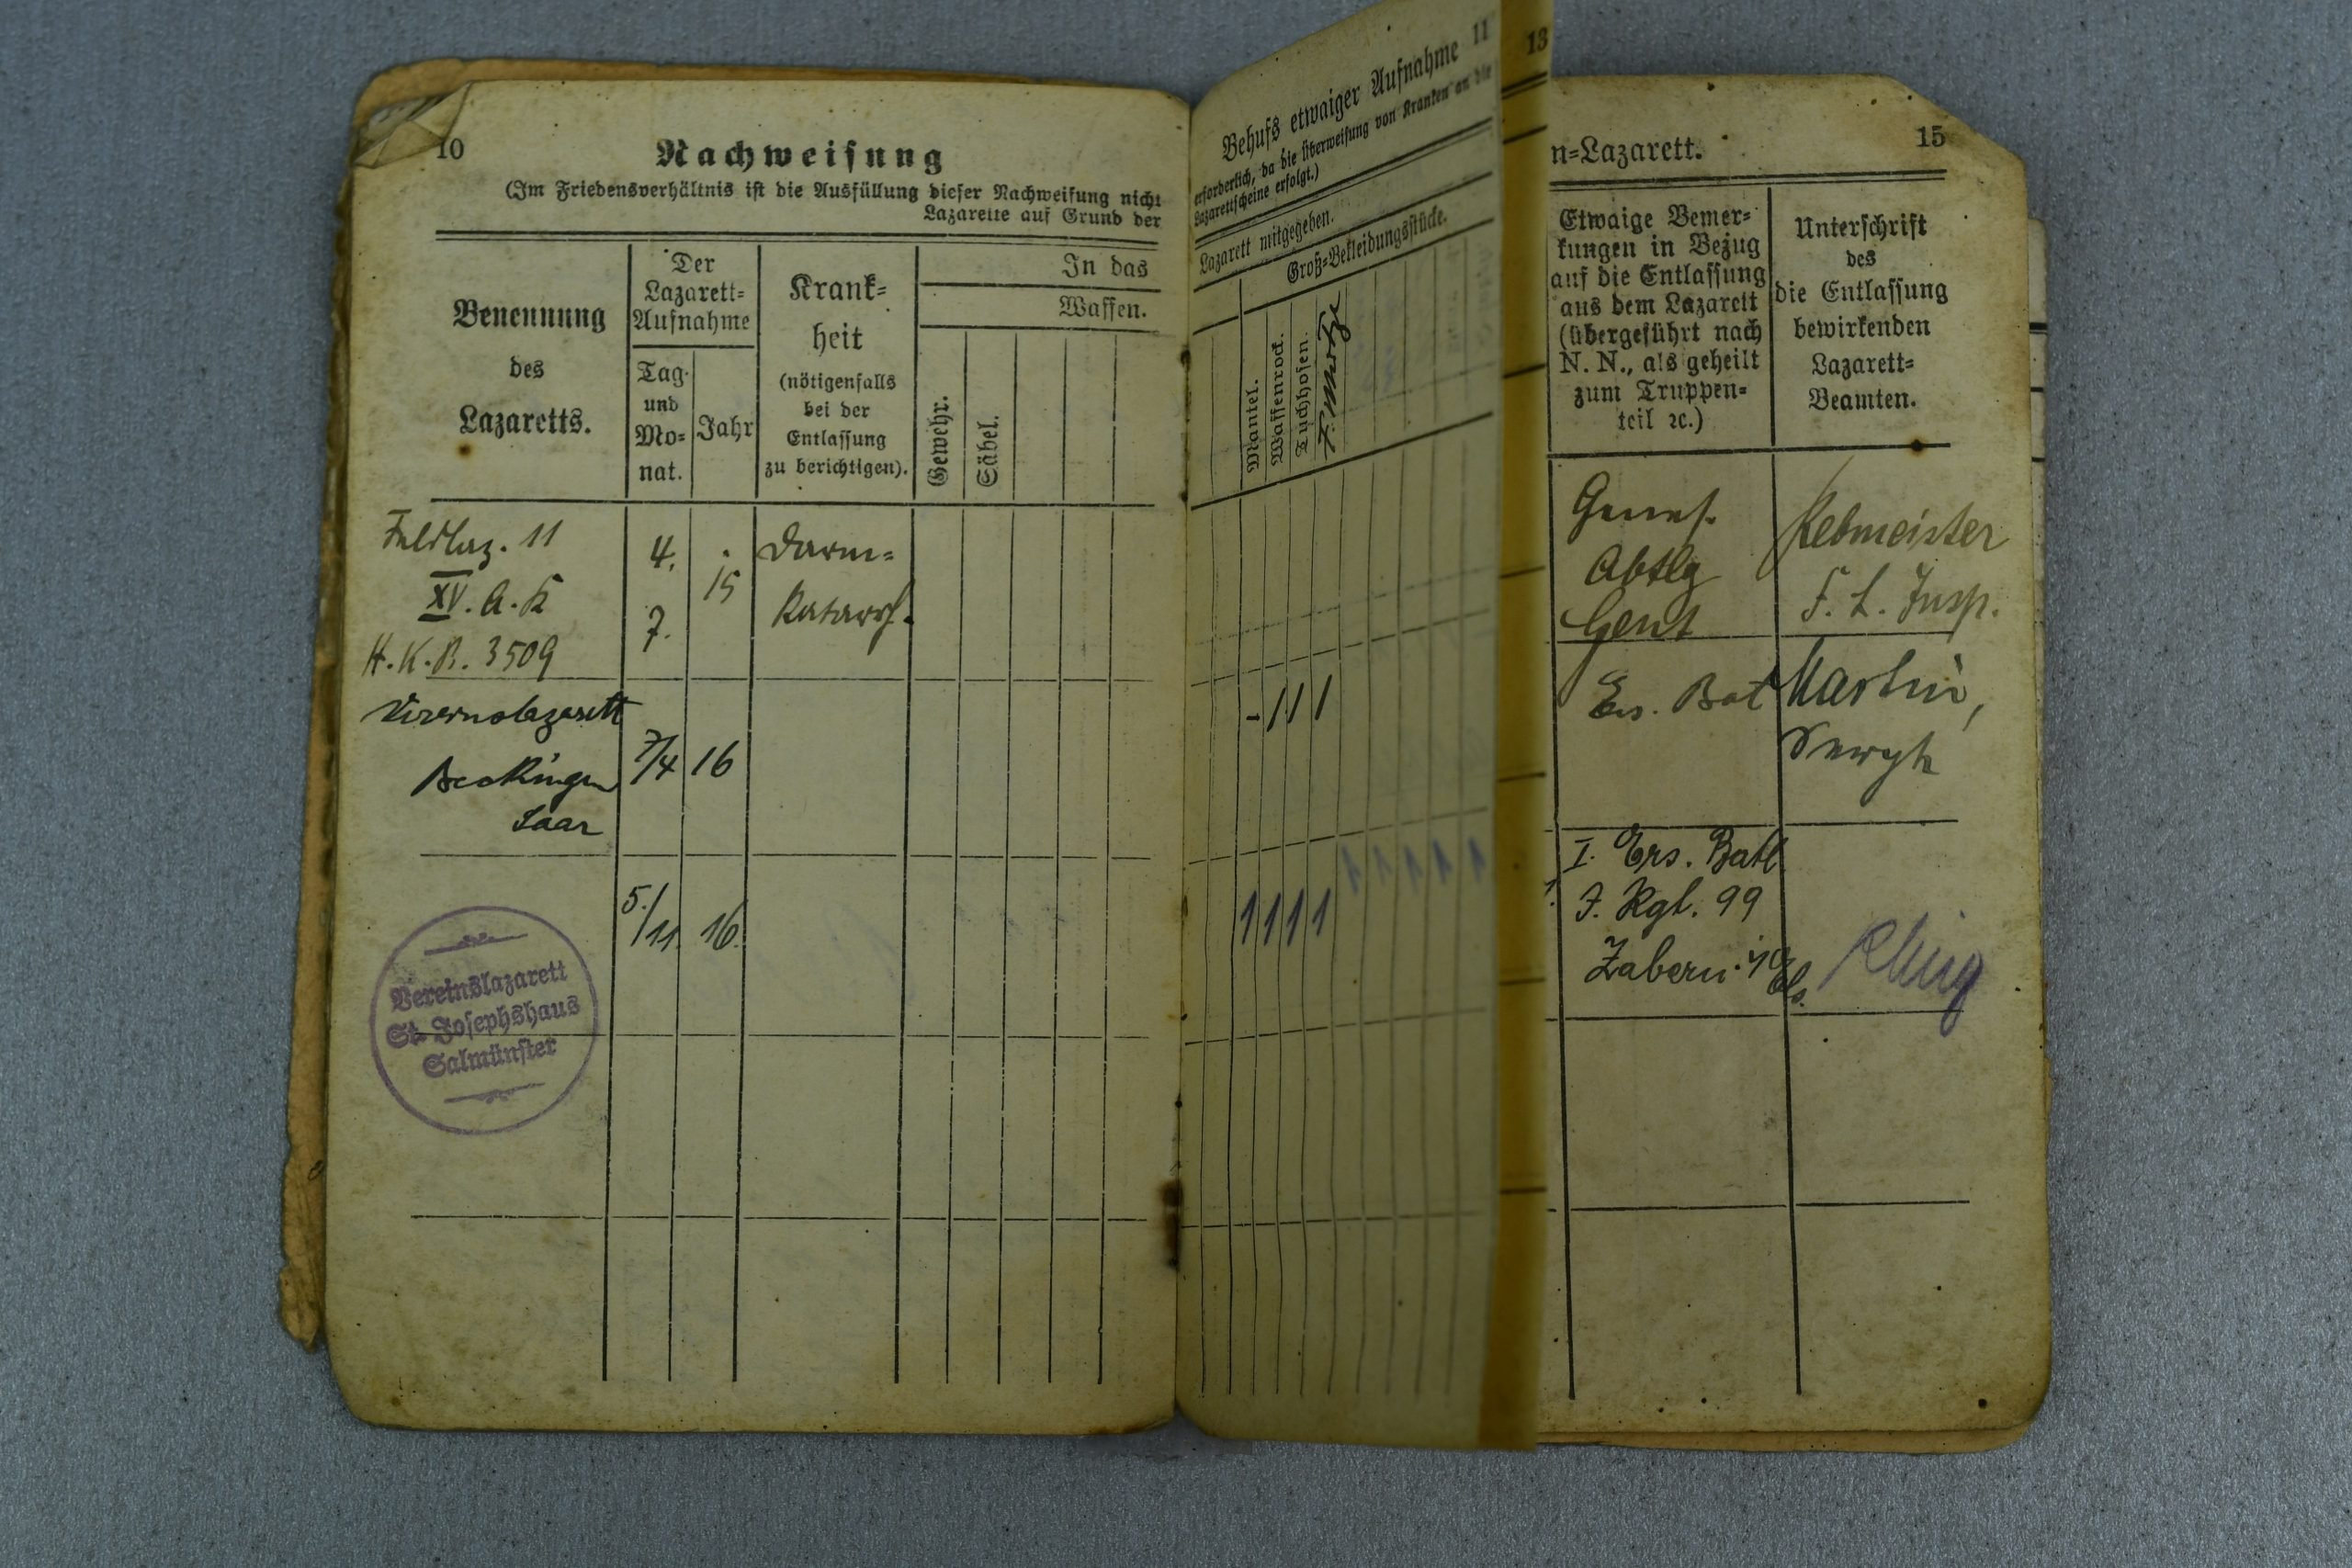 10
Nachweisung
(Im Friedensverhältnis ist die Ausfüllung dieser Nachweisung nicht
Lazarette auf Grund der
Benennung
des
Lazaretts.
Der
Lazarett=
Aufnahme
Tag
und
Mo=
nat.
Jahr
Krank=
heit
(nötigenfalls
bei der
Entlassung
zu berichtigen).
In das
Waffen.
Gewehr.
Säbel.
Feldlaz. 11
XV. A. K
H. K. R. 3509
4.
7.
15
Darm=
Katarrh.
Vereinslazarett
Beckingen
Saar
7/4
16
5./11.
16.
Vereinslazarett
St. Josephshaus
Salmünster
11
Behufs etwaiger Aufnahme
erforderlich, da die Überweisung von Kranken an die
Lazarettscheine erfolgt.)
Lazarett mitgegeben.
Groß=Bekleidungsstücke.
Mantel.
Waffenrock.
Tuchhosen.
- 1 1 1
1 1 1 1
13
15
n=Lazarett.
Etwaige Bemer=
kungen in Bezug
auf die Entlassung
aus dem Lazarett
(übergeführt nach
N. N., als geheilt
zum Truppen=
teil 2c.)
Unterschrift
des
die Entlassung
bewirkenden
Lazarett=
Beamten.
Genes.
Abtlg
Gent
Rebmeister
F. L. Insp.
Ers. Bat
Martin,
I. Ers. Batl
J. Rgt. 99
Zabern i/Els.